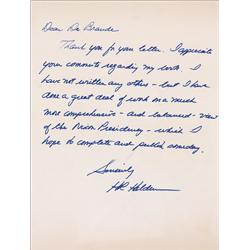 Dear Mr Brande
Thank you for your letter. I appreciate
your comments regarding my work. I
have not written any others - but I have
done a great deal of work on a much
more comprehensive - and balanced - view
of the Nixon Presidency - which I
hope to complete and publish someday.
Sincerely
HR Haldeman